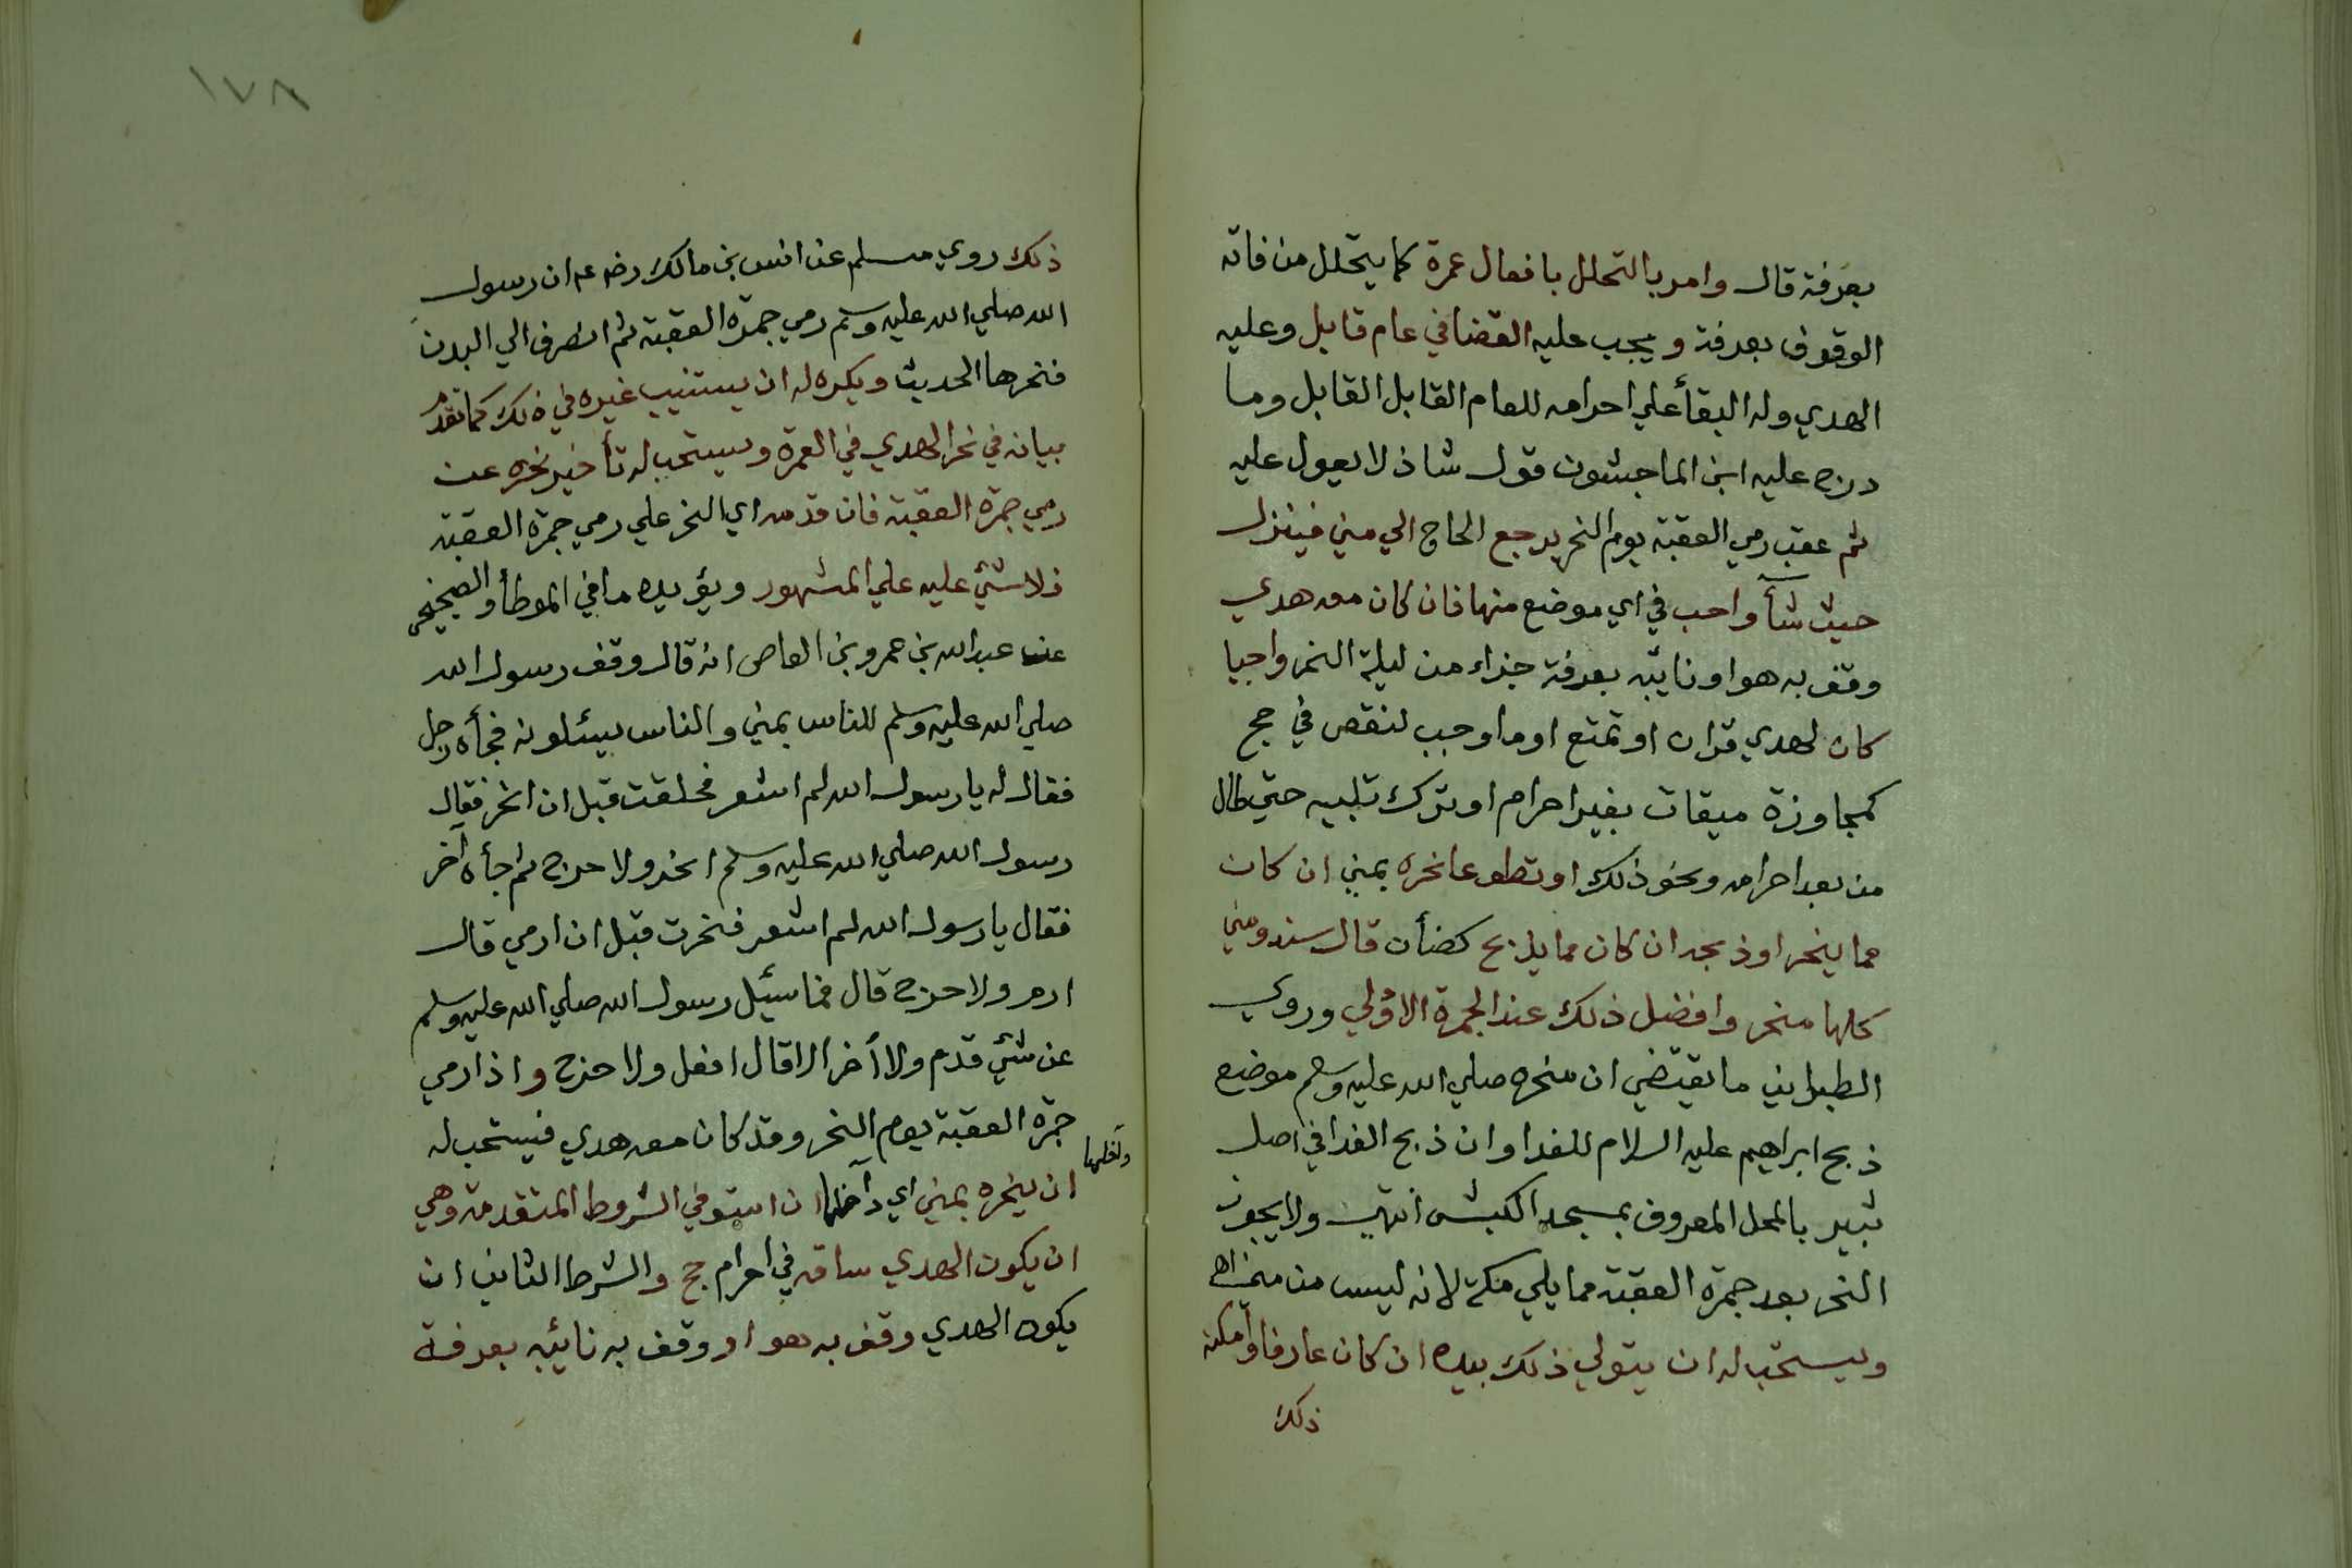 بعرفة قال وامر بالتحلل بافعال عمرة كما يتحلل من فاته
الوقوف بعرفة ويجب عليه القضا في عام قابل وعليه
الهدي وله البقأ علي احرامه للعام القابل القابل وما
درج عليه ابن الماجشون قول شاذ لا يعول عليه
ثم عقب رمي العقبة يوم النحر يرجع الحاج الي مني فينزل
حيث شآ واحب في اي موضع منها فان كان معه هدي
وقف به هو او نايبه بعرفة جزاء من ليلة النحر واجبا
كان لهدي قران او تمتع او ما وجب لنقص في حج
كمجاوزة ميقات بغير احرام او ترك تلبيه حتي طال
من بعد احرامه ونحو ذلك او تطوعا نحره بمني ان كان
مما ينحر او ذبحه ان كان مما يذبح كضأن قال سند ومني
كلها منحر وافضل ذلك عند الجمرة الاولي وروي
الطبراني ما يقتضي ان منحره صلي الله عليه وسلم موضع
ذبح ابراهيم عليه السلام للفدا وان ذبح الفدا في اصل
ثبير بالمحل المعروف بمسجد الكبش انتهي ولا يجوز
النحر بعد جمرة العقبة مما يلي مكة لانه ليس من مني اهـ
ويستحب له ان يتولي ذلك بيده ان كان عارفا وامكنه
ذلك
١٧٨
ذلك روي مسلم عن انس بن مالك رضه عه ان رسول
الله صلي الله عليه وسلم رمي جمرة العقبة ثم انصرف الي البدن
فنحرها الحديث ويكره له ان يستنيب غيره في ذلك كما تقدم
بيانه في نحر الهدي في العمرة ويستحب له تأخير نحره عن
رمي جمرة العقبة فان قدمه اي النحر علي رمي جمرة العقبة
فلا شئ عليه علي المشهور ويؤيده ما في الموطأ والصحيحي
عن عبد الله بن عمرو بن العاص انه قال وقف رسول الله
صلي الله عليه وسلم للناس بمني والناس يسئلونه فجأه رجل
فقال له يا رسول الله لم اشعر فحلقت قبل ان انحر فقال
رسول الله صلي الله عليه وسلم انحر ولا حرج ثم جأه آخر
فقال يا رسول الله لم اشعر فنحرت قبل ان ارمي قال
ارم ولا حرج قال فما سئيل رسول الله صلي الله عليه وسلم
عن شئ قدم ولا أخر الا قال افعل ولا حرج واذا رمي
جمرة العقبة يوم النحر وقد كان معه هدي فيستحب له
داخلها
ان ينحره بمني اي داخلها ان استوفي الشروط المتقدمة وهي
ان يكون الهدي ساقه في احرام حج والشرط الثاني ان
يكون الهدي وقف به هو او وقف به نائبه بعرفة